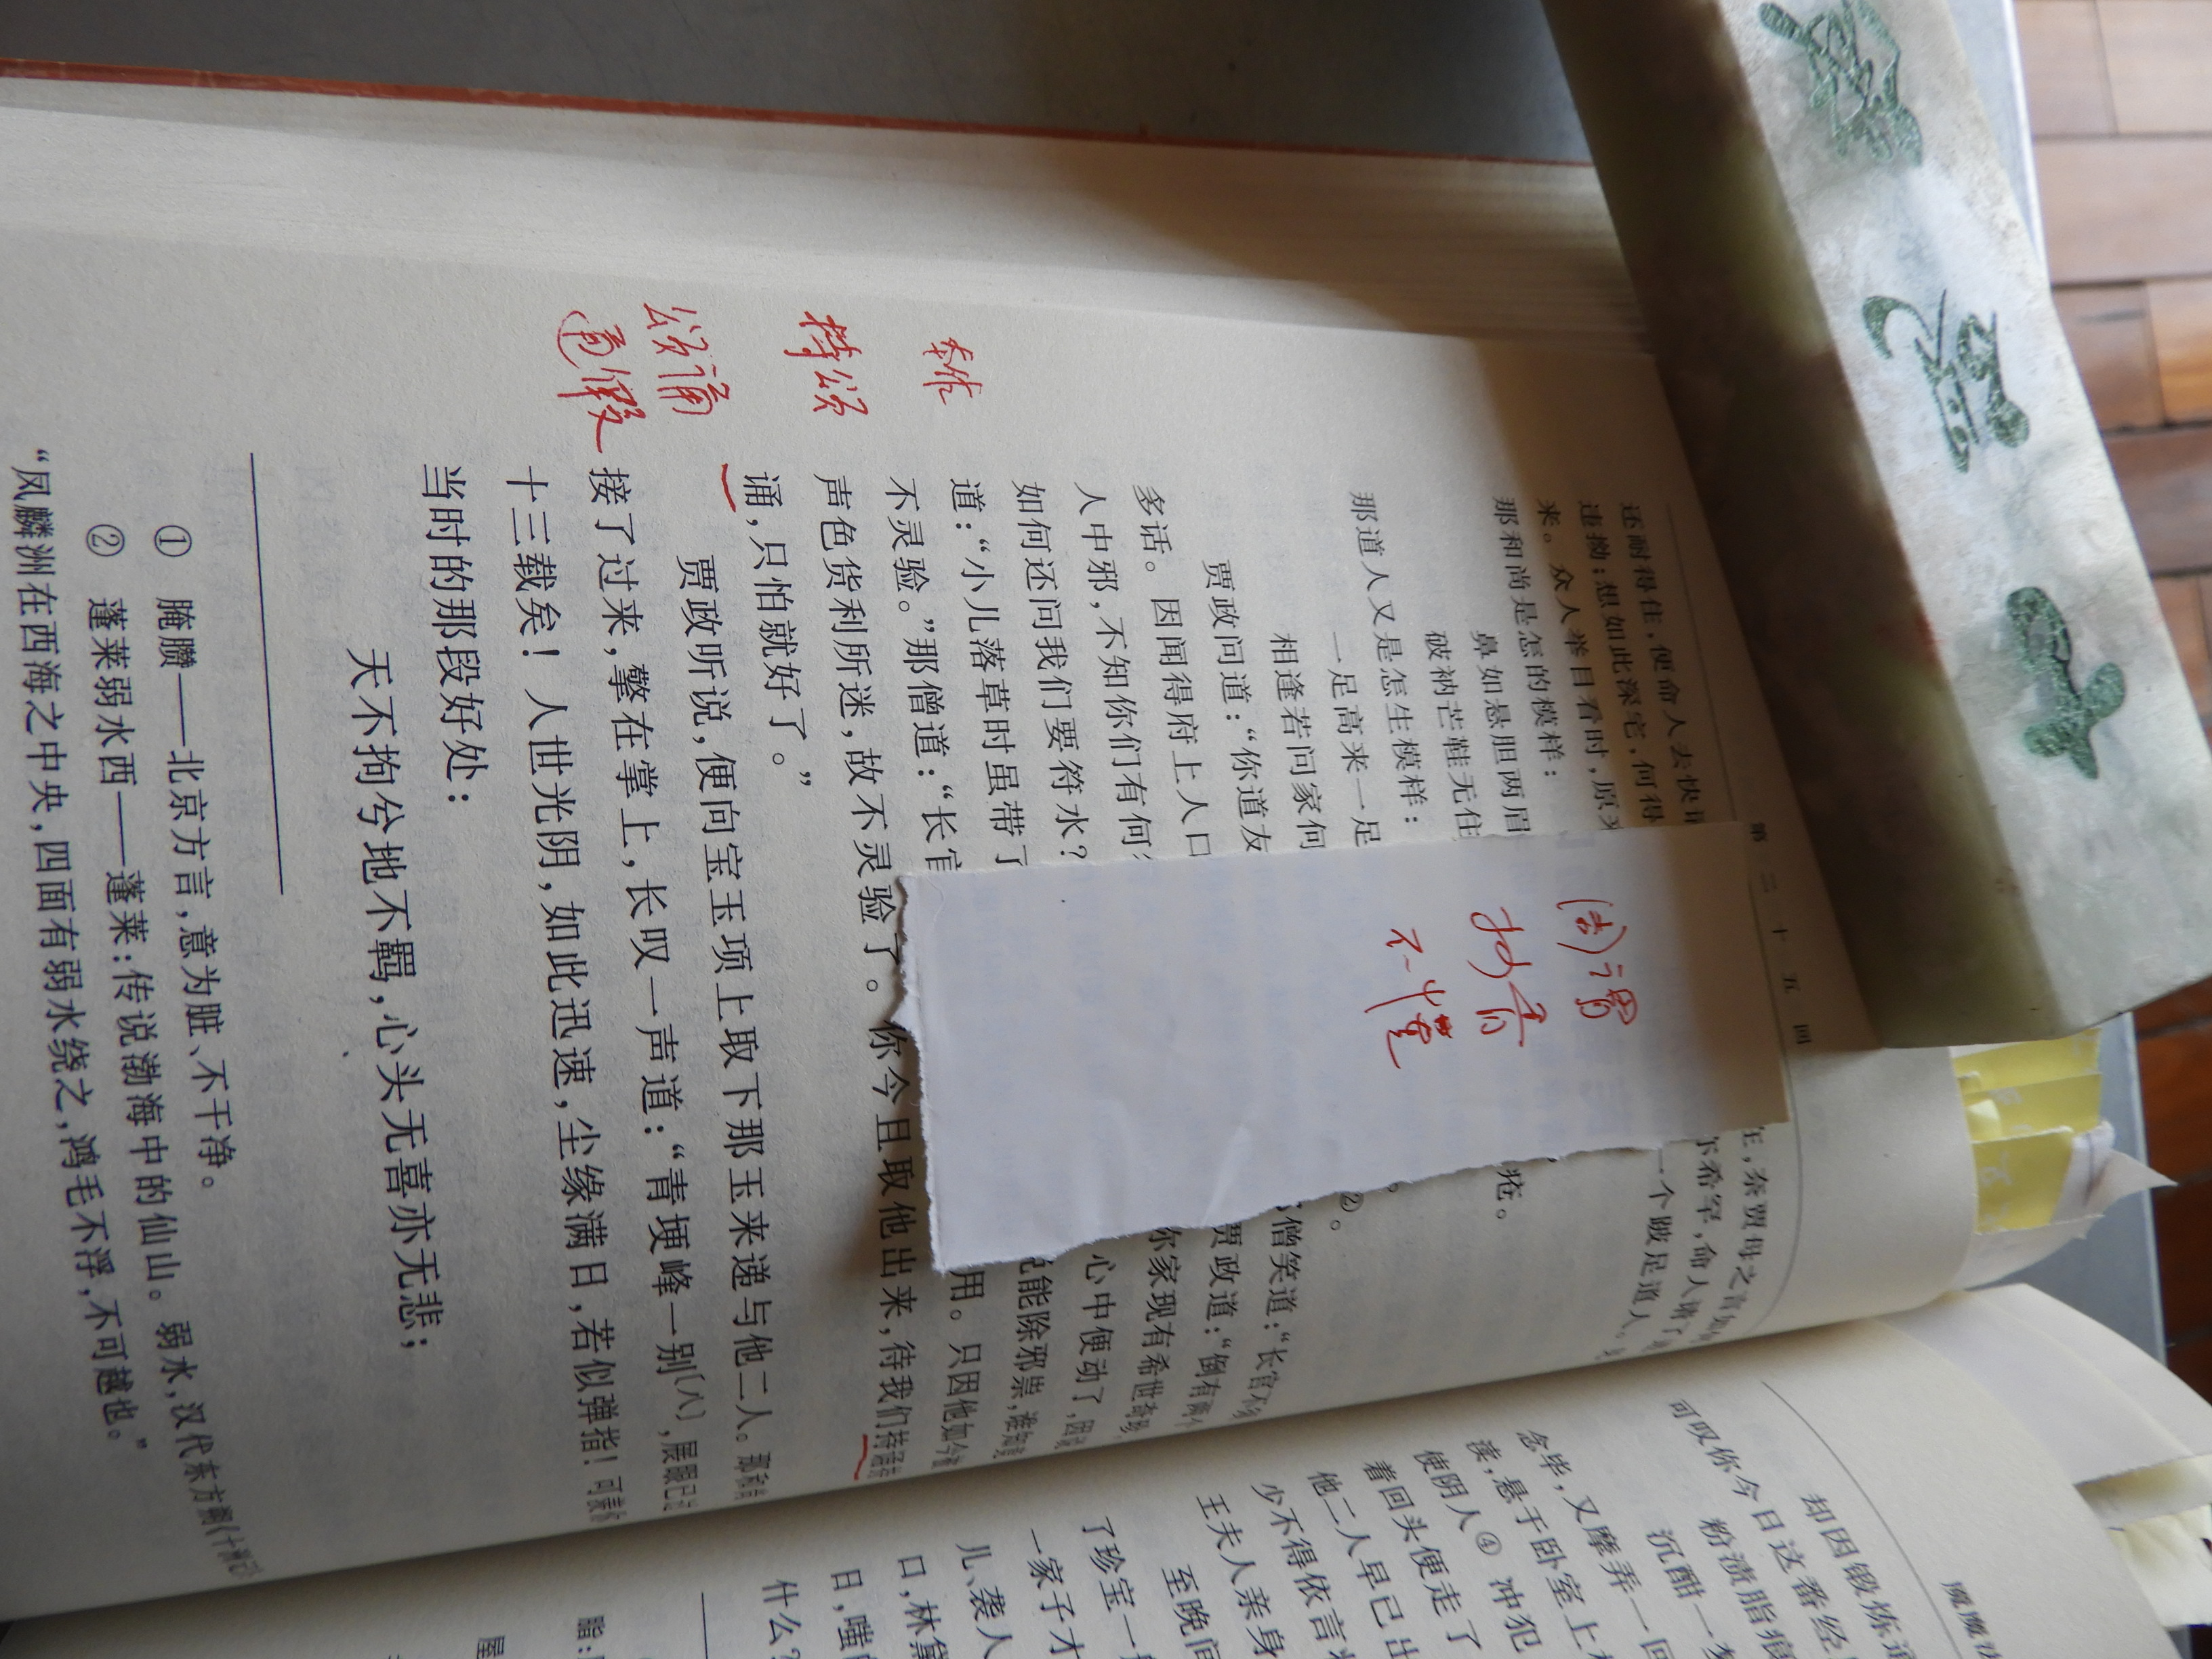 第二十五回
还耐得住，便命人去快请
违拗；想如此深宅，何得
来。众人举目看时，原来
一个跛足道人。
那和尚是怎的模样：
鼻如悬胆两眉
破衲芒鞋无住
疮。
那道人又是怎生模样：
一足高来一足
相逢若问家何
②。
贾政问道：“你道友
僧笑道：“长官不须
多话。因闻得府上人口
贾政道：“倒有两个
人中邪，不知你们有何
你家现有希世奇珍，
如何还问我们要符水？
心中便动了，因
道：“小儿落草时虽带了
说能除邪祟，谁知竟
不灵验。”那僧道：“长官
用。只因他如今被
声色货利所迷，故不灵验了。你今且取他出来，待我们持颂
诵，只怕就好了。”
贾政听说，便向宝玉项上取下那玉来递与他二人。那和尚
接了过来，擎在掌上，长叹一声道：“青埂峰一别〔八〕，展眼已过
十三载矣！人世光阴，如此迅速，尘缘满日，若似弹指！可羡你
当时的那段好处：
天不拘兮地不羁，心头无喜亦无悲；
① 腌臢——北京方言，意为脏、不干净。
② 蓬莱弱水西——蓬莱：传说渤海中的仙山。弱水，汉代东方朔《十洲记》
“凤麟洲在西海之中央，四面有弱水绕之，鸿毛不浮，不可越也。”
持颂
颂诵
通假
不懂
却因锻炼通
可叹你今日这番经
粉渍脂痕
沉酣一梦
念毕，又摩弄一回
渎，悬于卧室上
使阴人④冲犯
着回头便走了
他二人早已出
少不得依言
王夫人亲身
至晚间
了珍宝一
一家子才
儿、袭人
口，林黛
日，嗤的
什么？
脂：